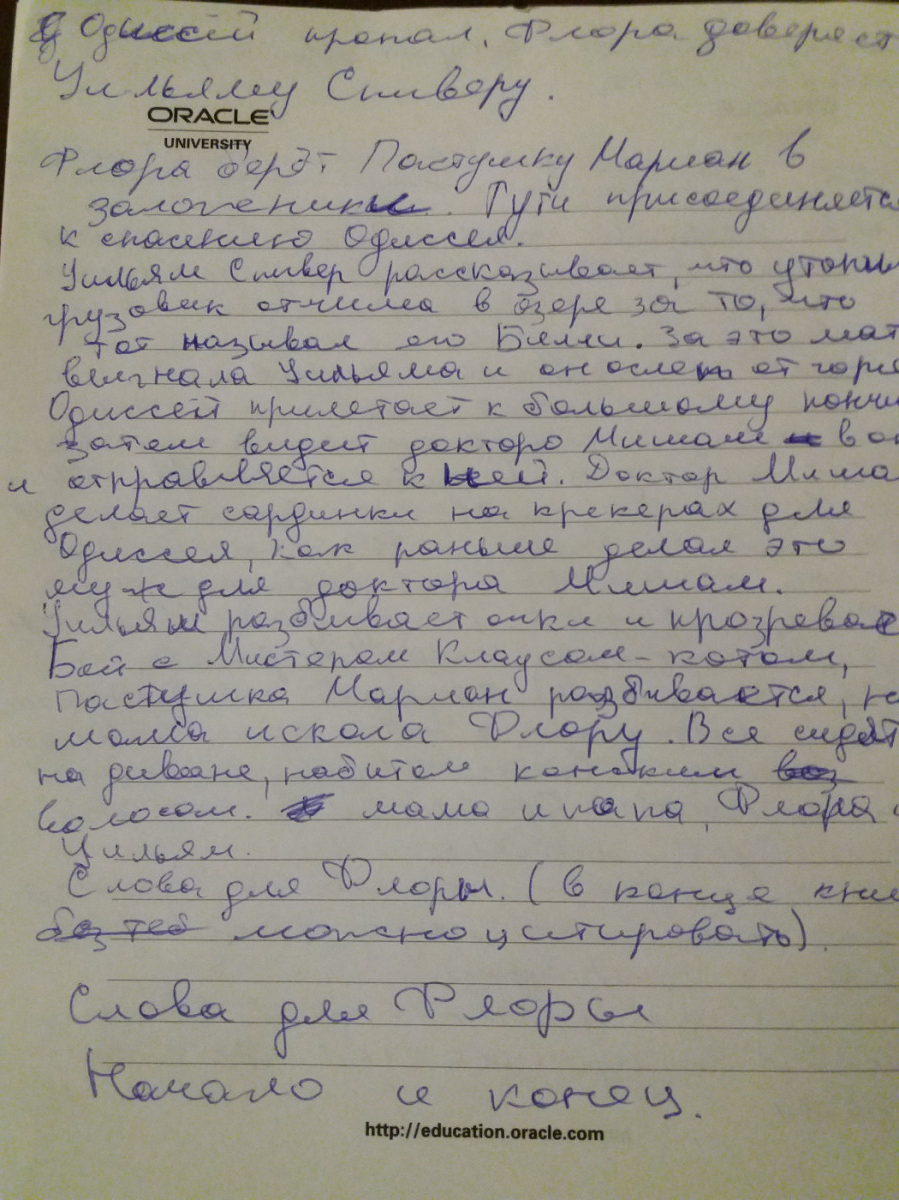 Одиссей пропал. Флора доверяет
Уильяму Спиверу.
ORACLE
UNIVERSITY
Флора берёт Пастушку Мариан в
заложники. Тути присоединяется
к спасению Одиссея.
Уильям Спивер рассказывает, что утопил
грузовик отчима в озере за то, что
тот называл его Билли. За это мат
выгнала Уильяма и он ослеп от горя
Одиссей прилетает к большому пончи
затем видит доктора Мишам в ок
и отправляется к ней. Доктор Миша
делает сардинки на крекерах для
Одиссея, как раньше делал это
муж для доктора Мишам.
Уильям разбивает очки и прозревае
Бой с Мистером Клаусом-котом,
Пастушка Мариан разбивается, но
мама искала Флору. Все сидят
на диване, набитом конским
волосом. мама и папа, Флора и
Уильям.
Слова для Флоры. (в конце кни
без теб можно цитировать).
Слова для Флоры
Начало и конец.
http://education.oracle.com